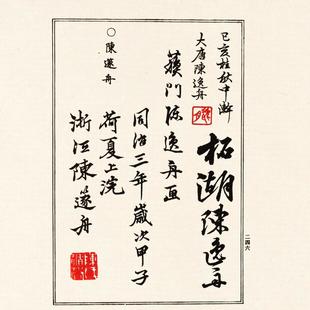 己亥桂秋中澣
大唐陳逸舟
柘湖陳逸舟
門陳逸舟画
同治三年歲次甲子
荷夏上浣
浙江陳邃舟
○陳邃舟
二四六